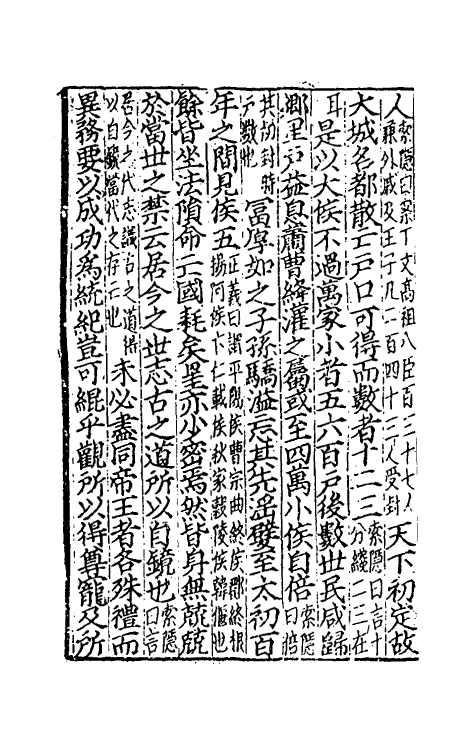 人索隱曰案下文高祖八臣百三十七人兼外戚及王子凡一百四十三人受封天下初定故
大城名都散亡戶口可得而數者十二三索隱曰言十分綫二三在
耳是以大侯不過萬家小者五六百戶後數世民咸歸
鄉里戶益息蕭曹絳灌之屬或至四萬小侯自倍索隱曰倍
其初封時戶數也富厚如之子孫驕溢忘其先淫嬖至太初百
年之間見侯五正義曰謂平陽侯曹宗曲終侯酈終根揚阿侯卞仁戴侯秋家穀陵侯韓偃也
餘皆坐法隕命亡國耗矣罔亦少密焉然皆身無兢兢
於當世之禁云居今之世志古之道所以自鏡也索隱曰言
居今之代志識古之道得以自鏡當代之存亡也未必盡同帝王者各殊禮而
異務要以成功為統紀豈可緄乎觀所以得尊寵及所